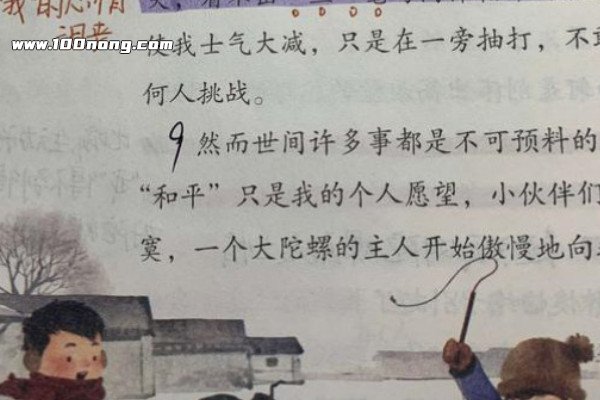 我的心情
www.100nong.com
使我士气大减，只是在一旁抽打，不敢
何人挑战。
9 然而世间许多事都是不可预料的
“和平”只是我的个人愿望，小伙伴们
寞，一个大陀螺的主人开始傲慢地向